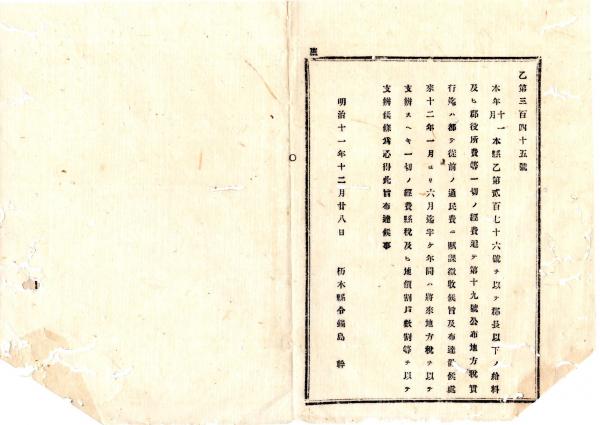 乙第三百四十五號
本年十一月本縣乙第貳百七十六號ヲ以テ郡長以下ノ給料
及ヒ郡役所費等一切ノ經費追テ第十九號公布地方稅實
行迄ハ都テ從前ノ通民費ニ賦課徵收候旨及布達置候處
來十二年一月ヨリ六月迄半ケ年間ハ將來地方稅ヲ以テ
支辨スヘキ一切ノ經費縣稅及ヒ地價割戶數割等ヲ以テ
支辨候條爲心得此旨布達候事
明治十一年十二月廿八日 栃木縣令鍋島 幹